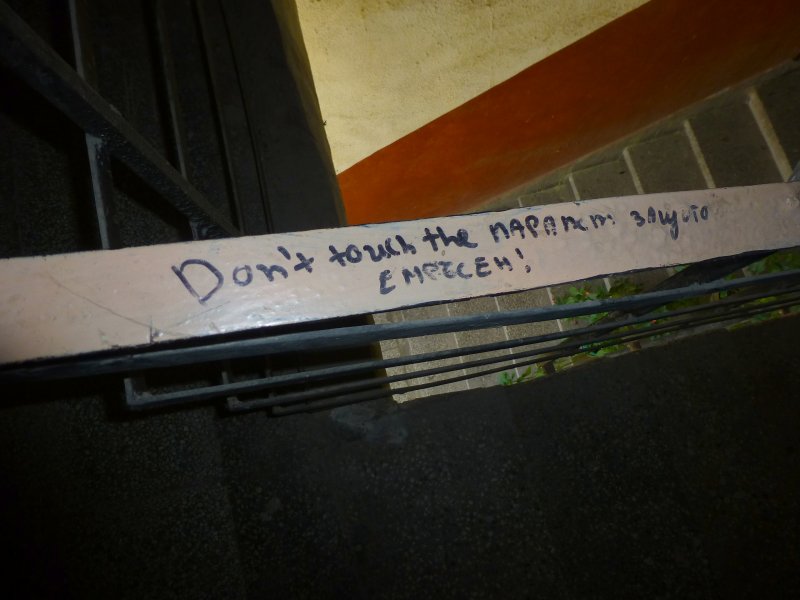 Don't touch the ПАРАПЕТ защото
ЕМРЕСЕН!